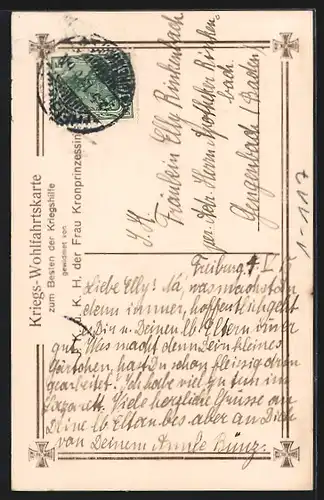 Kriegs-Wohlfahrtskarte
zum Besten der Kriegshilfe
gewidmet von
K. H. der Frau Kronprinzessin
I. H.
Fräulein Elly Rinkenbach
per Adr. Herrn Apotheker Rinken
bach.
Gengenbach (Baden)
1-117
Freiburg
Liebe Elly! Na, was machst du
denn immer, hoffentlich geht
es Dir u. Deinen lb. Eltern immer
gut. Was macht denn Dein kleines
Gärtchen, hast Du schon fleissig drin
gearbeitet. Ich habe viel zu tun im
Lazarett. Viele herzliche Grüsse an
Deine lb. Eltern bes. aber an Dich
von Deinem Bünz.